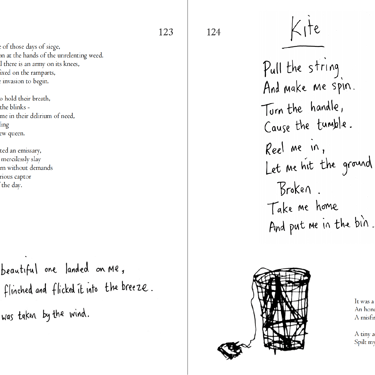 123
of those days of siege,
at the hands of the unrelenting weed.
there is an army on its knees,
on the ramparts,
invasion to begin.
to hold their breath,
the blinks -
me in their delirium of need,
new queen.
an emissary,
mercilessly slay
without demands
captor
of the day.
beautiful one landed on me,
flinched and flicked it into the breeze.
was taken by the wind.
124
Kite
Pull the string
And make me spin.
Turn the handle,
Cause the tumble.
Reel me in,
Let me hit the ground
Broken.
Take me home
And put me in the bin.
It was a
An hon
A misfi
A tiny a
Spilt my